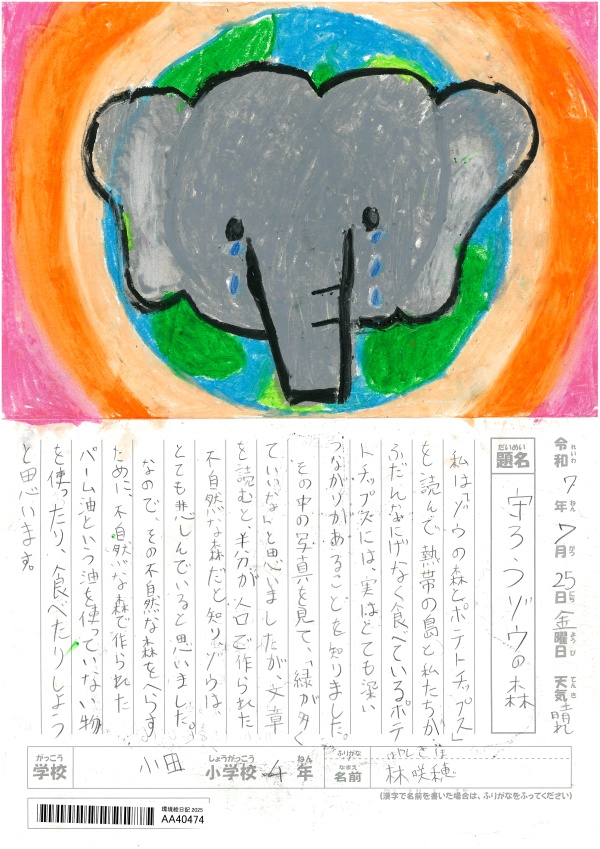 令和7年7月25日金曜日 天気晴れ
れいわ ねん がつ にち ようび てんき
だいめい
題名 守ろうゾウの森
私は「ゾウの森とポテトチップス」
を読んで熱帯の島と私たちが
ふだんなにげなく食べているポテ
トチップスには、実はとても深い
つながりがあることを知りました。
その中の写真を見て、「緑が多く
ていいなぁと思いましたが、文章
を読むと、半分が人口で作られた
不自然な森だと知りゾウは、
とても悲しんでいると思いました。
なので、その不自然な森をへらす
ために、不自然な森で作られた
パーム油という油を使っていない物
を使ったり、食べたりしよう
と思います。
がっこう しょうがっこう ねん
学校 小田 小学校 4 年
ふりがな はやしさほ
なまえ
名前 林咲穂
(漢字で名前を書いた場合は、ふりがなをふってください)
環境絵日記 2025
AA40474